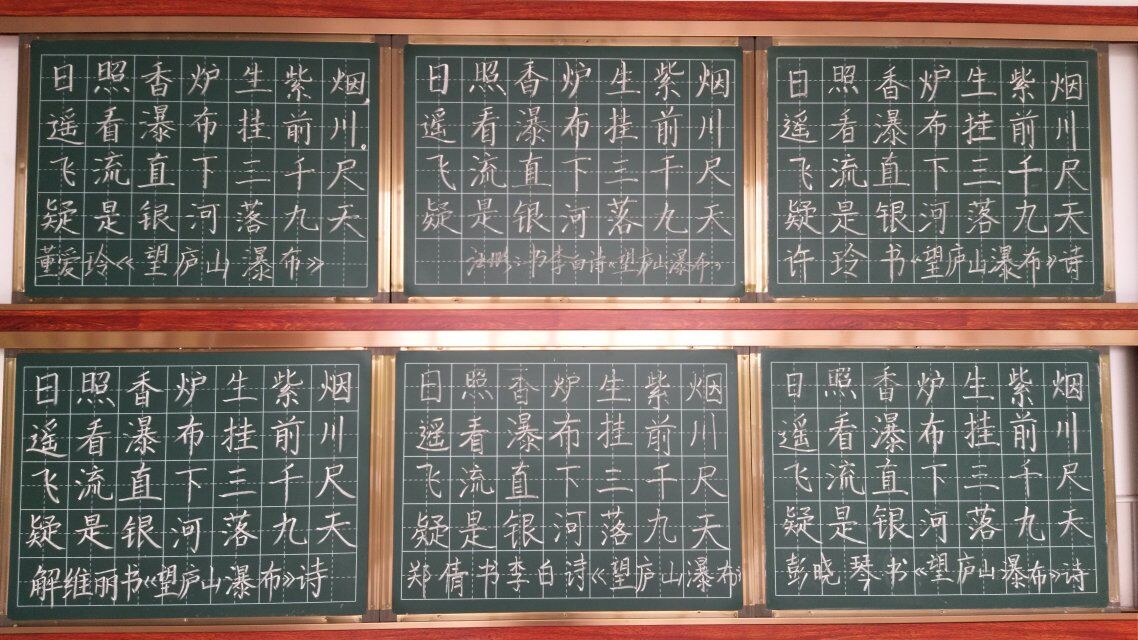 日照香炉生紫烟，
遥看瀑布挂前川。
飞流直下三千尺
疑是银河落九天
董爱玲《望庐山瀑布》
日照香炉生紫烟
遥看瀑布挂前川
飞流直下三千尺
疑是银河落九天
书李白诗《望庐山瀑布》
日照香炉生紫烟
遥看瀑布挂前川
飞流直下三千尺
疑是银河落九天
许玲书《望庐山瀑布》诗
日照香炉生紫烟
遥看瀑布挂前川
飞流直下三千尺
疑是银河落九天
解维丽书《望庐山瀑布》诗
日照香炉生紫烟
遥看瀑布挂前川
飞流直下三千尺
疑是银河落九天
郑倩书李白诗《望庐山瀑布》
日照香炉生紫烟
遥看瀑布挂前川
飞流直下三千尺
疑是银河落九天
彭晓琴书《望庐山瀑布》诗